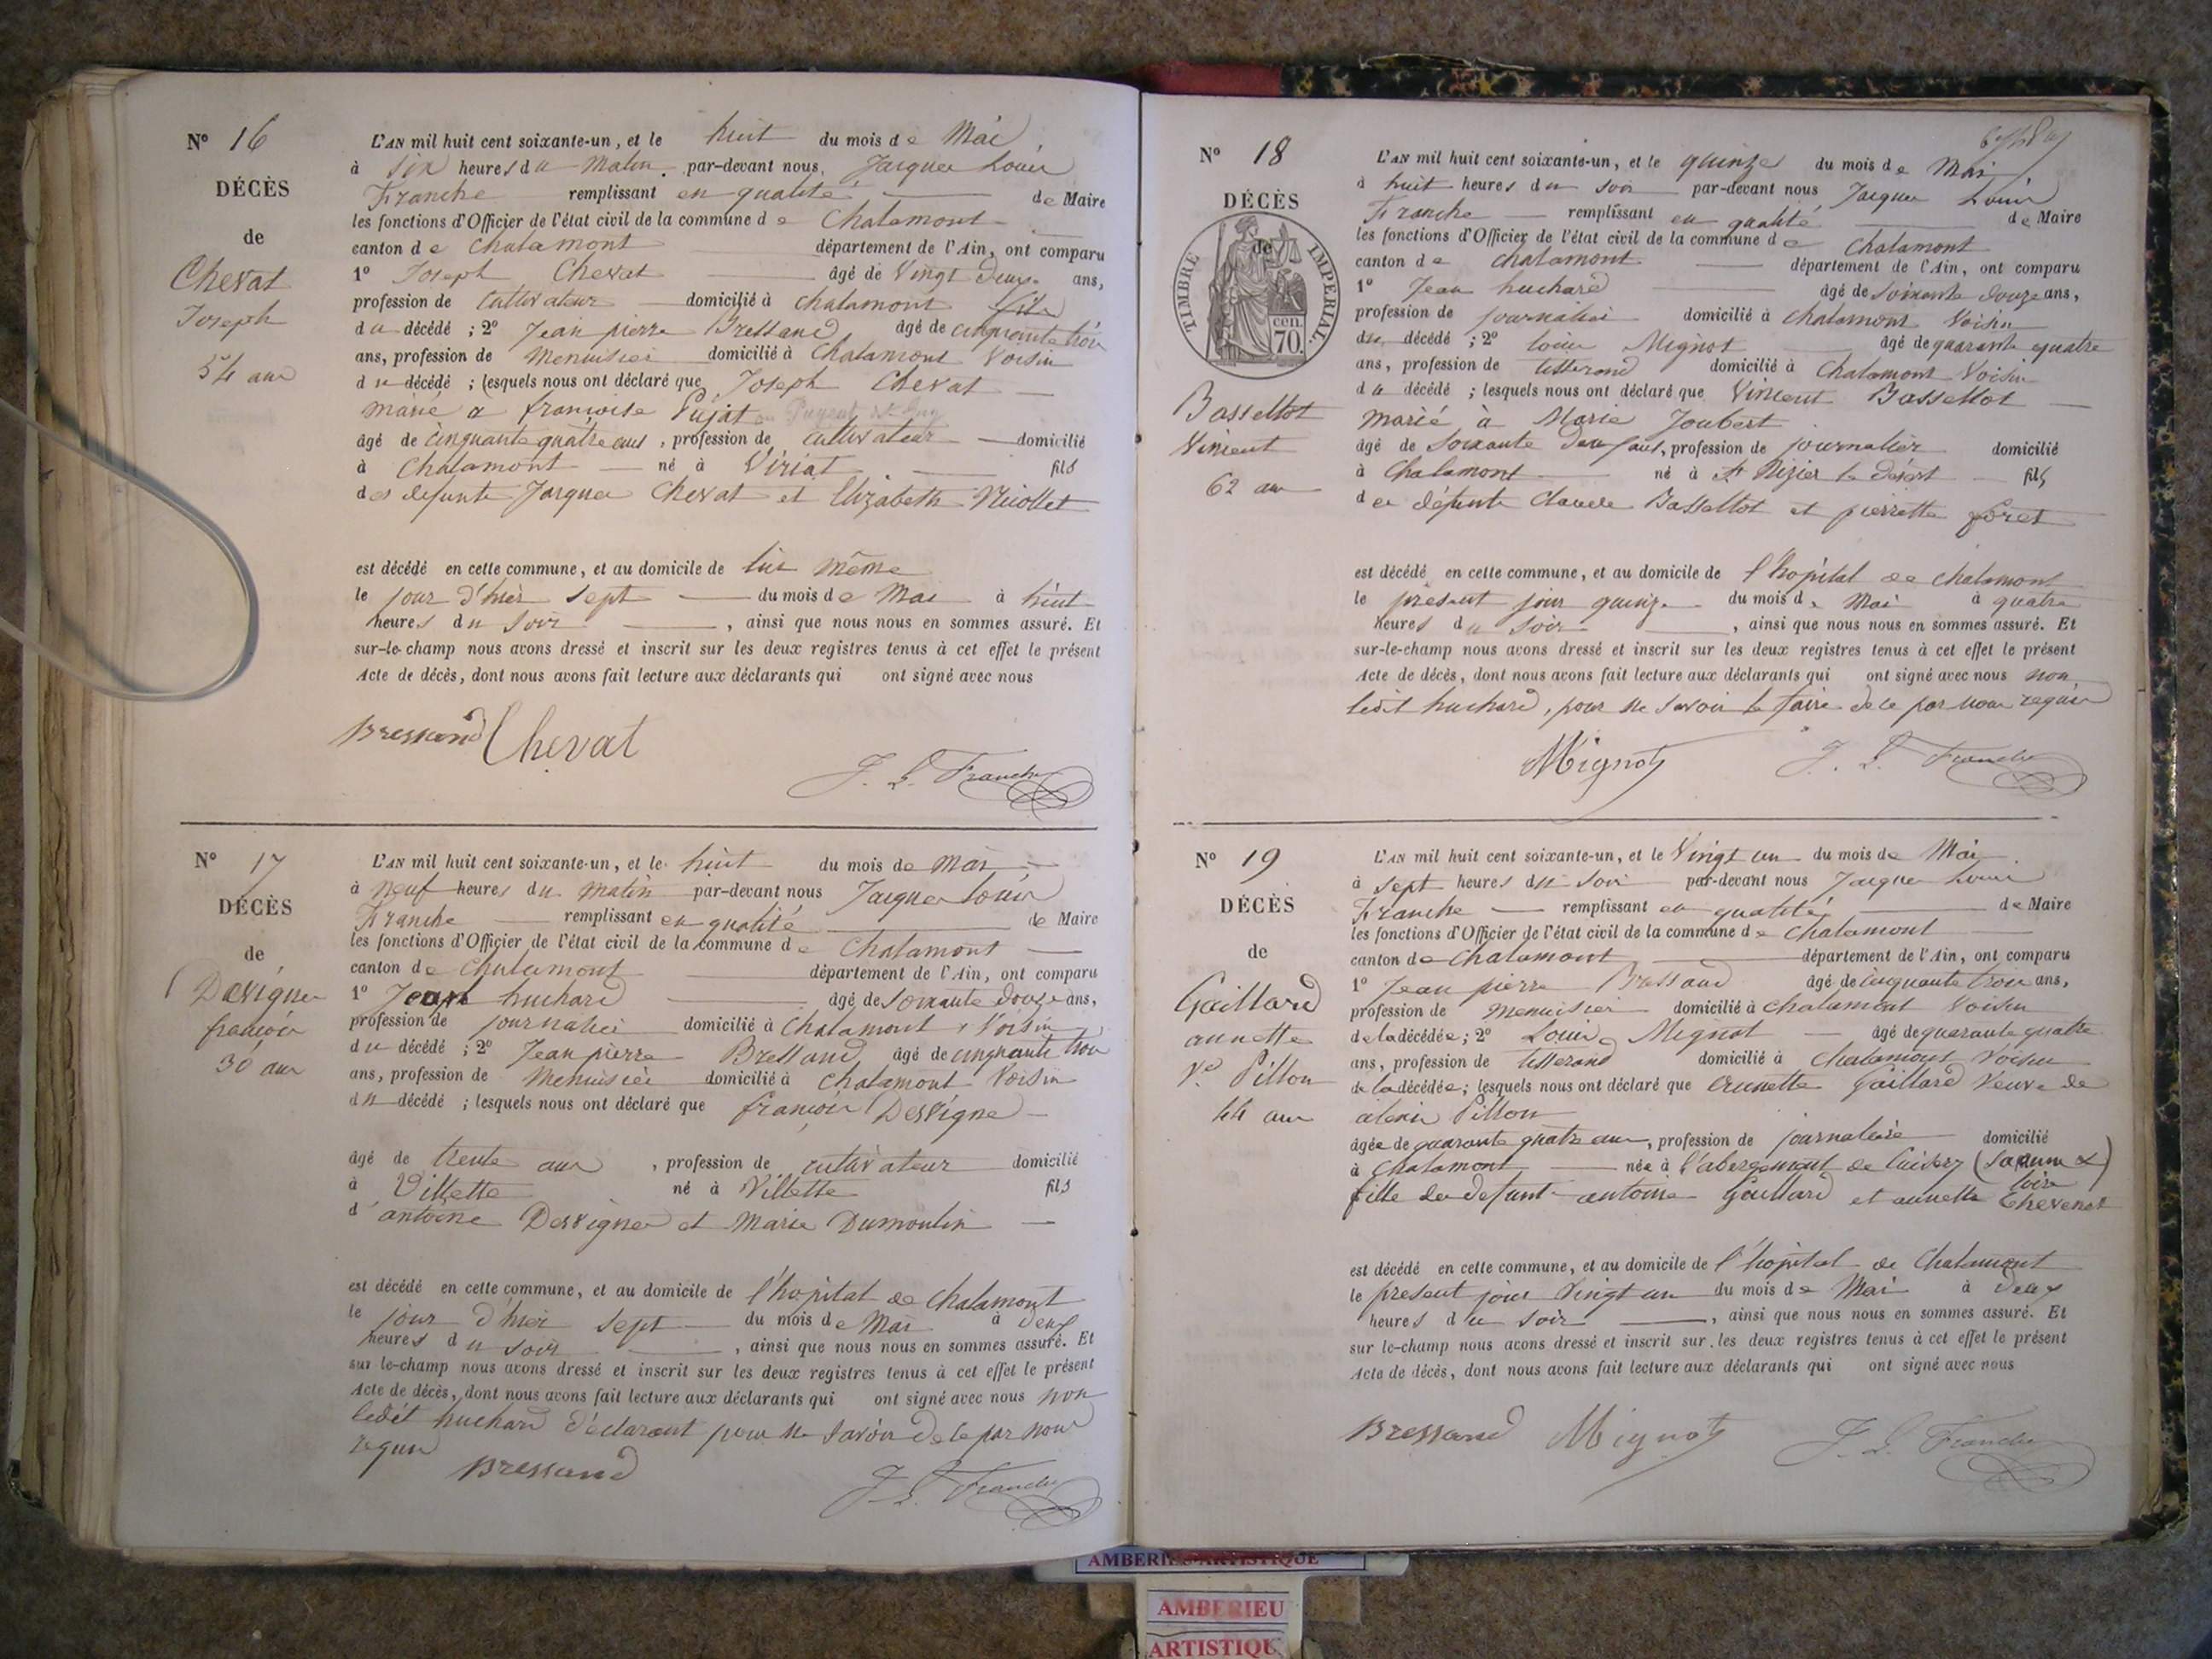 N° 16
DÉCÈS
de
Chevat
Joseph
54 ans
L'AN mil huit cent soixante-un, et le huit du mois de Mai
à six heures du Matin par-devant nous, Jacques Louis
Franche remplissant en qualité de Maire
les fonctions d'Officier de l'état civil de la commune de Chalamont
canton de Chalamont département de l'Ain, ont comparu
1° Joseph Chevat âgé de Vingt deux ans,
profession de Cultivateur domicilié à Chalamont fils
du décédé ; 2° Jean pierre Bressand âgé de cinquante trois
ans, profession de Menuisier domicilié à Chalamont Voisin
du décédé ; lesquels nous ont déclaré que Joseph Chevat
marié a françoise Pujat
âgé de Cinquante quatre ans, profession de cultivateur domicilié
à Chalamont né à Viriat fils
des defunts Jacques Chevat et Elizabeth Nicollet
est décédé en cette commune, et au domicile de lui même
le jour d'hier sept du mois de Mai à huit
heures du Soir, ainsi que nous nous en sommes assuré. Et
sur-le-champ nous avons dressé et inscrit sur les deux registres tenus à cet effet le présent
Acte de décès, dont nous avons fait lecture aux déclarants qui ont signé avec nous
Bressand Chevat
J. L. Franche
N° 17
DÉCÈS
de
Devignes
françois
30 ans
L'AN mil huit cent soixante-un, et le huit du mois de Mai
à neuf heures du matin par-devant nous Jacques Louis
Franche remplissant en qualité de Maire
les fonctions d'Officier de l'état civil de la commune de Chalamont
canton de Chalamont département de l'Ain, ont comparu
1° Jean huchard âgé de soixante douze ans,
profession de journalier domicilié à Chalamont Voisin
du décédé ; 2° Jean pierre Bressand âgé de cinquante trois
ans, profession de Menuisier domicilié à Chalamont Voisin
du décédé ; lesquels nous ont déclaré que françois Desvigne
âgé de trente ans, profession de cultivateur domicilié
à Villette né à Villette fils
d'antoine Desvignes et Marie Dumoulin
est décédé en cette commune, et au domicile de l'hopital de Chalamont
le jour d'hier sept du mois de Mai à deux
heures du soir, ainsi que nous nous en sommes assuré. Et
sur le-champ nous avons dressé et inscrit sur les deux registres tenus à cet effet le présent
Acte de décès, dont nous avons fait lecture aux déclarants qui ont signé avec nous non
ledit huchard déclarant pour ne savoir de ce par nous
requis
Bressand
J. L. Franche
N° 18
DÉCÈS
de
TIMBRE IMPÉRIAL.
70 cen.
Bassettot
Vincent
62 ans
L'AN mil huit cent soixante-un, et le quinze du mois de Mai
à huit heures du soir par-devant nous Jacques Louis
Franche remplissant en qualité de Maire
les fonctions d'Officier de l'état civil de la commune de Chalamont
canton de Chalamont département de l'Ain, ont comparu
1° Jean huchard âgé de soixante douze ans,
profession de journalier domicilié à Chalamont Voisin
du décédé ; 2° Louis Mignot âgé de quarante quatre
ans, profession de tisserand domicilié à Chalamont Voisin
du décédé ; lesquels nous ont déclaré que Vincent Bassettot
marié à Marie Joubert
âgé de soixante deux ans, profession de journalier domicilié
à Chalamont né à St Nizier le désert fils
des défunts Claude Bassettot et pierrette foret
est décédé en cette commune, et au domicile de l'hopital de Chalamont
le présent jour quinze du mois de Mai à quatre
heures du soir, ainsi que nous nous en sommes assuré. Et
sur-le-champ nous avons dressé et inscrit sur les deux registres tenus à cet effet le présent
Acte de décès, dont nous avons fait lecture aux déclarants qui ont signé avec nous non
ledit huchard, pour ne savoir le faire de ce par nous requis
Mignot
J. L. Franche
N° 19
DÉCÈS
de
Gaillard
annette
Ve Pillon
44 ans
L'AN mil huit cent soixante-un, et le Vingt un du mois de Mai
à sept heures du soir par-devant nous Jacques Louis
Franche remplissant en qualité de Maire
les fonctions d'Officier de l'état civil de la commune de Chalamont
canton de Chalamont département de l'Ain, ont comparu
1° Jean pierre Bressand âgé de cinquante trois ans,
profession de Menuisier domicilié à Chalamont Voisin
de la décédée ; 2° Louis Mignot âgé de quarante quatre
ans, profession de tisserand domicilié à Chalamont Voisin
de la décédée ; lesquels nous ont déclaré que annette Gaillard Veuve de
alexis Pillon
âgée de quarante quatre ans, profession de journalière domicilié
à Chalamont née à l'abergement de Cuisery (saonne &
loire)
fille de defunt antoine Gaillard et annette Thevenet
est décédé en cette commune, et au domicile de l'hopital de Chalamont
le present jour Vingt un du mois de Mai à deux
heures du soir, ainsi que nous nous en sommes assuré. Et
sur le-champ nous avons dressé et inscrit sur les deux registres tenus à cet effet le présent
Acte de décès, dont nous avons fait lecture aux déclarants qui ont signé avec nous
Bressand Mignot
J. L. Franche
AMBERIEU ARTISTIQUE
AMBERIEU
ARTISTIQU